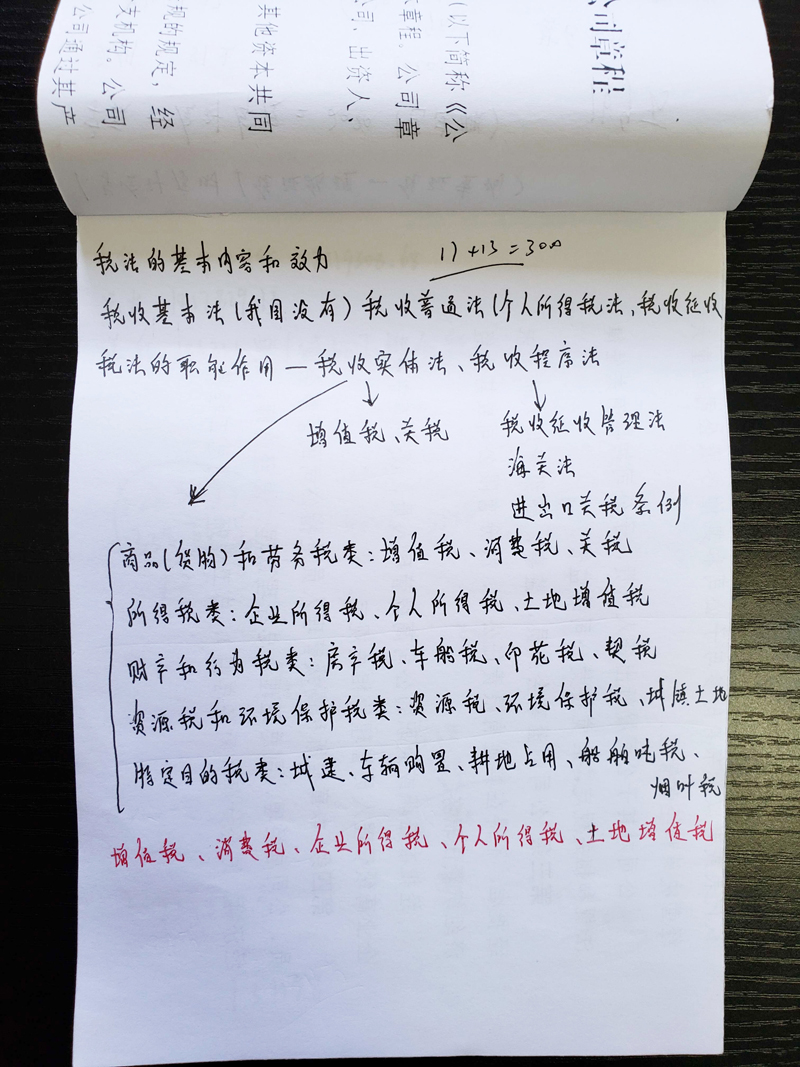 公司章程
（以下简称《公
章程。公司章
公司、出资人、
其他资本共同
规的规定，经
支机构。公司
公司通过其产
税法的基本内容和效力
17+13=300
税收基本法(我国没有)税收普通法(个人所得税法、税收征收
税法的职能作用—税收实体法、税收程序法
增值税、关税
税收征收管理法
海关法
进出口关税条例
商品(货物)和劳务税类:增值税、消费税、关税
所得税类:企业所得税、个人所得税、土地增值税
财产和行为税类:房产税、车船税、印花税、契税
资源税和环境保护税类:资源税、环境保护税、城镇土地
特定目的税类:城建、车辆购置、耕地占用、船舶吨税、
烟叶税
增值税、消费税、企业所得税、个人所得税、土地增值税